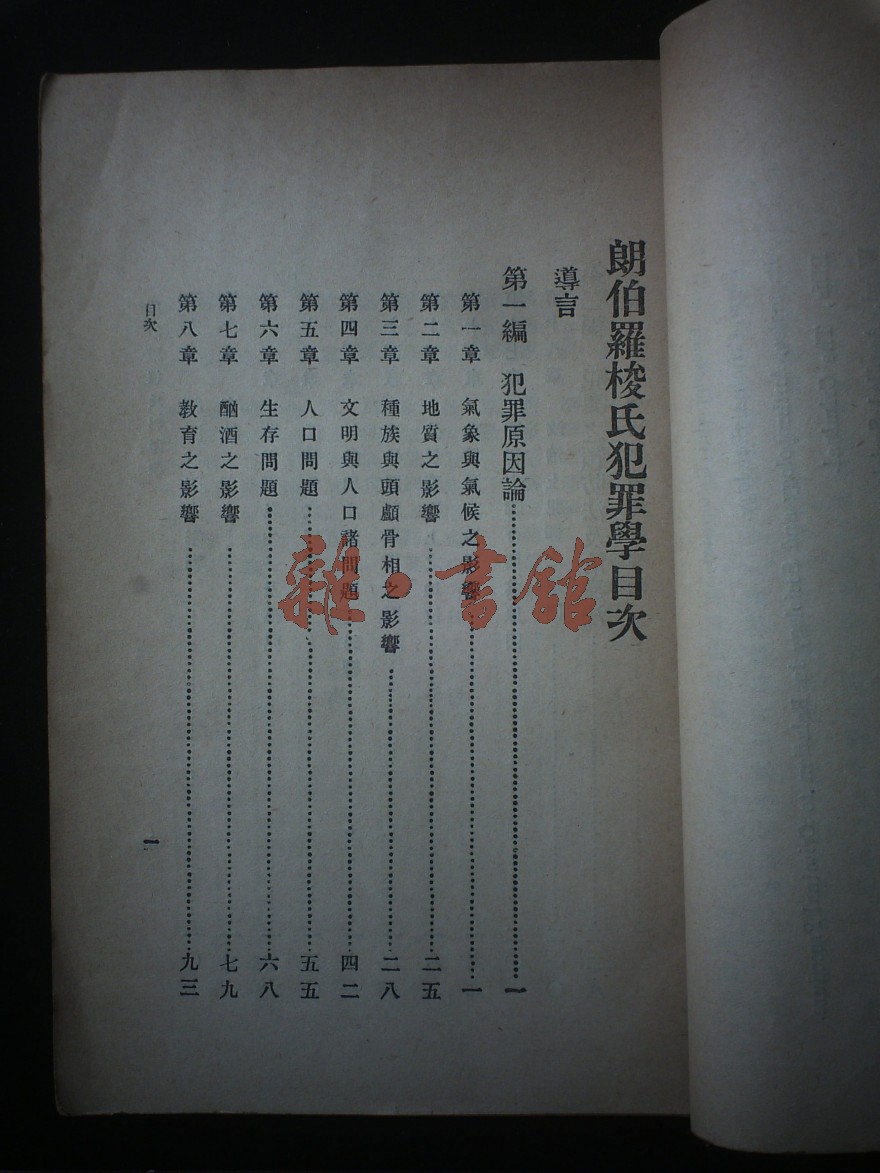 朗伯羅梭氏犯罪學目次
導言
第一編 犯罪原因論 一
第一章 氣象與氣候之影響 一
第二章 地質之影響 二五
第三章 種族與頭顱骨相之影響 二八
第四章 文明與人口諸問題 四二
第五章 人口問題 五五
第六章 生存問題 六八
第七章 酗酒之影響 七九
第八章 教育之影響 九三
目次 一
雜·書館